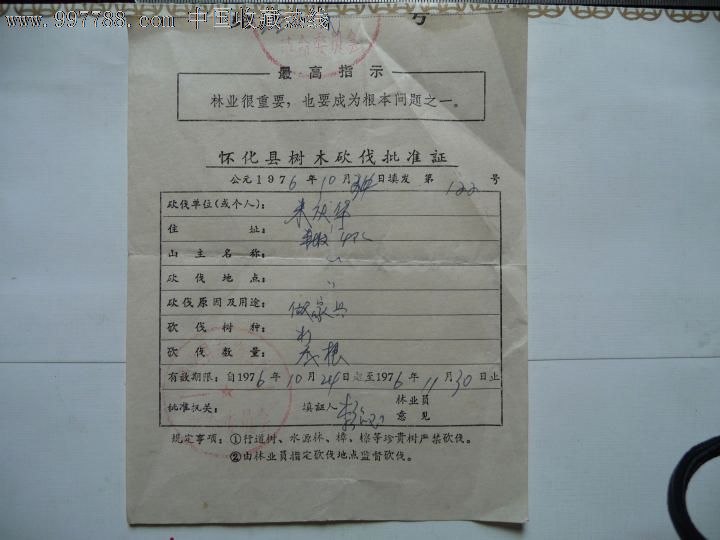 www.997788.com 中国收藏热线
号
最高指示
林业很重要，也要成为根本问题之一。
怀化县树木砍伐批准证
公元1976年10月24日填发 第122号
砍伐单位(或个人)：
住址：
山主名称：〃
砍伐地点：〃
砍伐原因及用途：做家具
砍伐树种：杉
砍伐数量：叁根
有效期限：自1976年10月24日起至1976年11月30日止
批准机关： 填证人 林业员
意见
规定事项：①行道树、水源林、樟、棕等珍贵树严禁砍伐。
②由林业员指定砍伐地点监督砍伐。